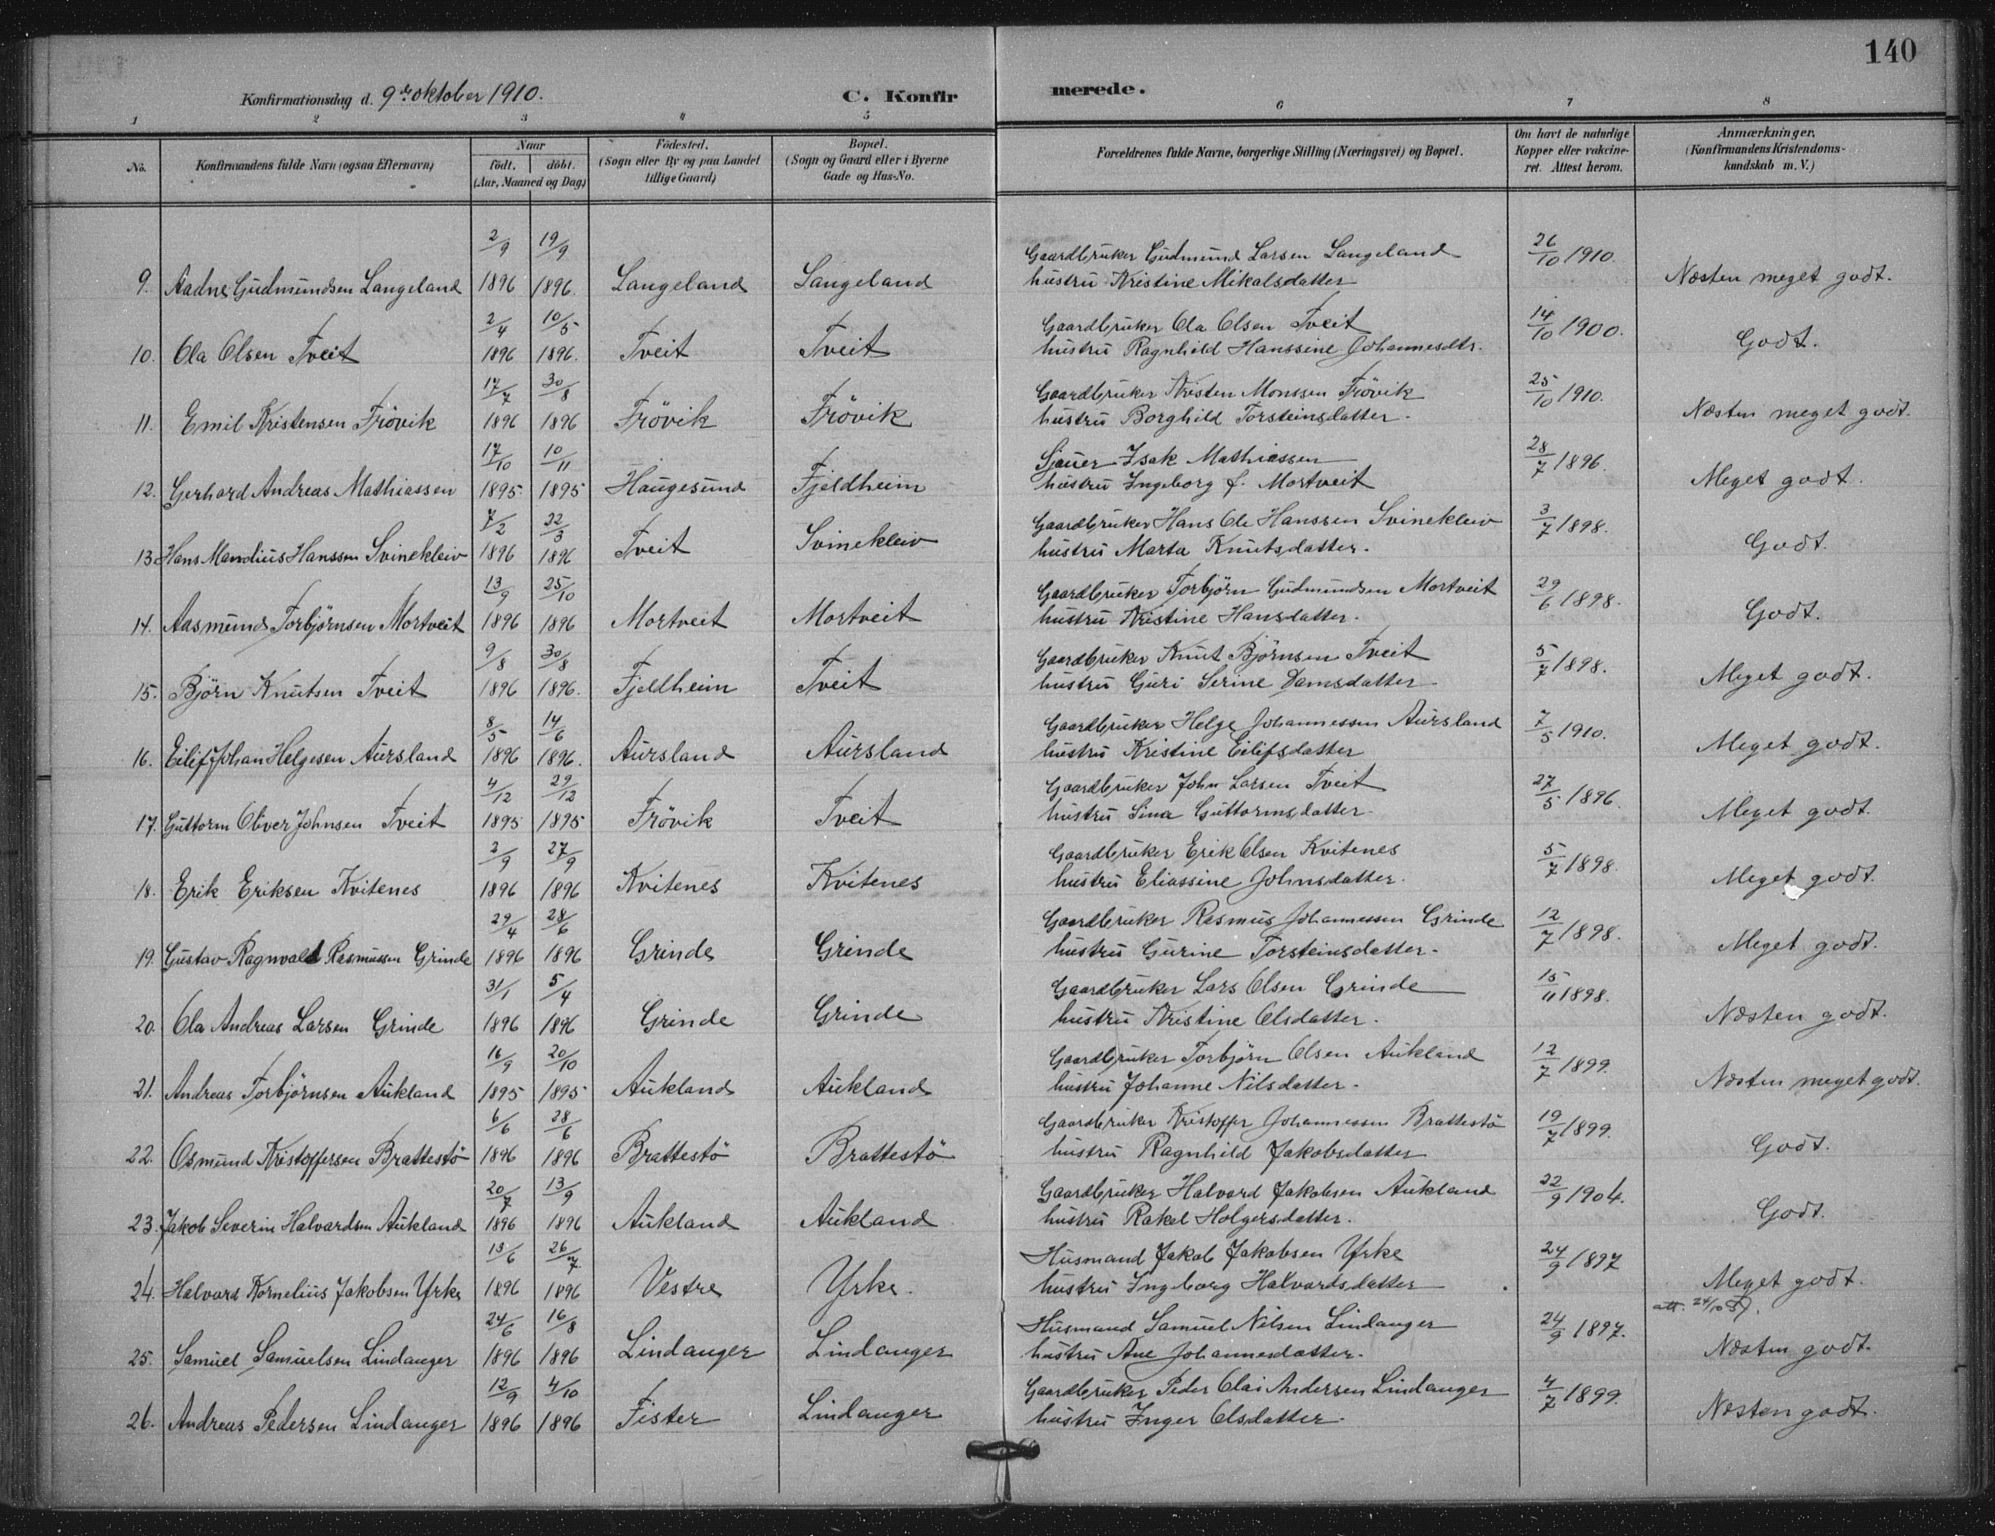 140
Konfirmationsdag d. 9de oktober 1910. C. Konfirmerede.
1 2 3 4 5 6 7 8
No. Konfirmandens fulde Navn (ogsaa Efternavn) Naar født. døbt. (Aar, Maaned og Dag) Fødested. (Sogn eller By og paa Landet tillige Gaard) Bopæl. (Sogn og Gaard eller i Byerne Gade og Hus-No. Forældrenes fulde Navne, borgerlige Stilling (Næringsvei) og Bopæl. Om havt de naturlige Kopper eller vaccineret. Attest herom. Anmærkninger. (Konfirmandens Kristendomskundskab m. V.)
2/9 19/9 Gaardbruker Gudmund Larsen Langeland 26/10 1910.
9. Aadne Gudmundsen Langeland 1896 1896. Langeland Langeland hustru Kristine Mikalsdatter Næsten meget godt.
2/4 10/5 Gaardbruker Ola Olsen Tveit 14/10 1900.
10. Ola Olsen Tveit 1896 1896. Tveit Tveit hustru Ragnhild Hanssine Johannesdtr. Godt.
17/7 30/8 Gaardbruker Kristen Monssen Frövik 25/10 1910.
11. Emil Kristensen Frövik 1896 1896 Frövik Frövik hustru Borghild Torsteinsdatter. Næsten meget godt.
17/10 10/11 Sjauer Isak Mathiassen 28/7 1896.
12. Gerhard Andreas Mathiassen 1895 1895 Haugesund Fjeldheim hustru Ingeborg f. Mortveit Meget godt.
7/2 22/3 Gaardbruker Hans Ole Hanssen Svinekleiv 3/7 1898.
13. Hans Mandius Hanssen Svinekleiv 1896 1896 Tveit Svinekleiv hustru Marta Knutsdatter. Godt.
13/9 25/10 Gaardbruker Torbjørn Gudmundsen Mortveit 29/6 1898.
14. Aasmund Torbjørnsen Mortveit 1896 1896 Mortveit Mortveit hustru Kristine Hansdatter. Godt.
9/8 30/8 Gaardbruker Knut Björnsen Tveit 5/7 1898.
15. Björn Knutsen Tveit 1896 1896. Fjeldheim Tveit hustru Guri Serine Damsdatter Meget godt.
8/5 14/6 Gaardbruker Helge Johannessen Aursland 7/5 1910.
16. Eilif Johan Helgesen Aursland 1896 1896. Aursland Aursland hustru Kristine Eilifsdatter Meget godt.
4/12 29/12 Gaardbruker John Larsen Tveit 27/5 1896.
17. Guttorm Oliver Johnsen Tveit 1895 1895 Frövik Tveit hustru Sina Guttormsdatter Meget godt.
2/9 27/9 Gaardbruker Erik Olsen Kvitenes 5/7 1898.
18. Erik Eriksen Kvitenes 1896 1896 Kvitenes Kvitenes hustru Eliassine Johnsdatter. Meget godt.
29/4 28/6 Gaardbruker Rasmus Johannessen Grinde 12/7 1898.
19. Gustav Ragnvald Rasmussen Grinde 1896 1896 Grinde Grinde hustru Gurine Torsteinsdatter. Meget godt.
31/1 5/4 Gaardbruker Lars Olsen Grinde 15/11 1898.
20. Ola Andreas Larsen Grinde 1896 1896 Grinde Grinde hustru Kristine Olsdatter. Næsten godt.
16/9 20/10 Gaardbruker Torbjörn Olsen Aukland 12/7 1899.
21. Andreas Torbjörnsen Aukland 1895 1895 Aukland Aukland hustru Johanne Nilsdatter. Næsten meget godt.
6/6 28/6 Gaardbruker Kristoffer Johannessen Brattestö 19/7 1899.
22. Osmund Kristoffersen Brattestö 1896 1896 Brattestö Brattestö hustru Ragnhild Jakobsdatter Godt.
20/7 13/9 Gaardbruker Halvard Jakobsen Aukland 22/9 1904.
23. Jakob Severin Halvardsen Aukland 1896 1896 Aukland Aukland hustru Rakel Holgersdatter. Godt.
13/6 26/7 Husmand Jakob Jakobsen Yrke 24/9 1897
24. Halvard Kornelius Jakobsen Yrke 1896 1896 Vestre Yrke. hustru Ingeborg Halvardsdatter Meget godt.
24/6 16/8 Husmand Samuel Nilsen Lindanger 24/9 1897. att. 24/10
25. Samuel Samuelsen Lindanger 1896 1896 Lindanger Lindanger hustru Ane Johannesdatter. Næsten godt.
12/9 4/10 Gaardbruker Peder Olai Andersen Lindanger 4/7 1899.
26. Andreas Pedersen Lindanger 1896 1896 Fister Lindanger hustru Inger Olsdatter Næsten godt.